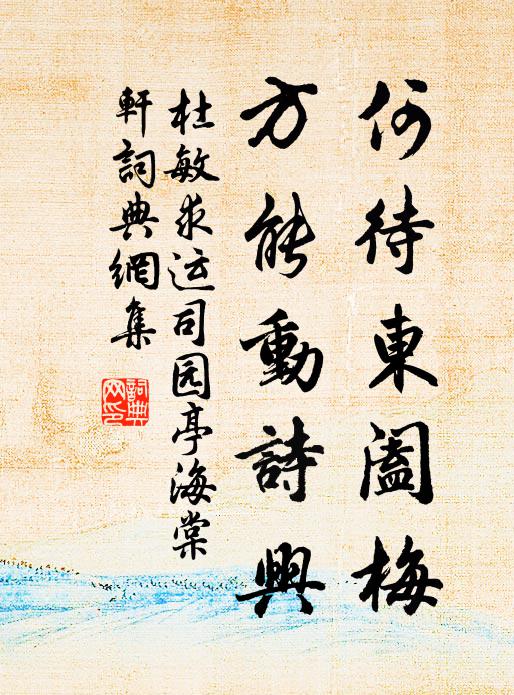 何待東阁梅
方能動詩興
杜敏求运司园亭海棠
軒詞典網集
詞典
网印